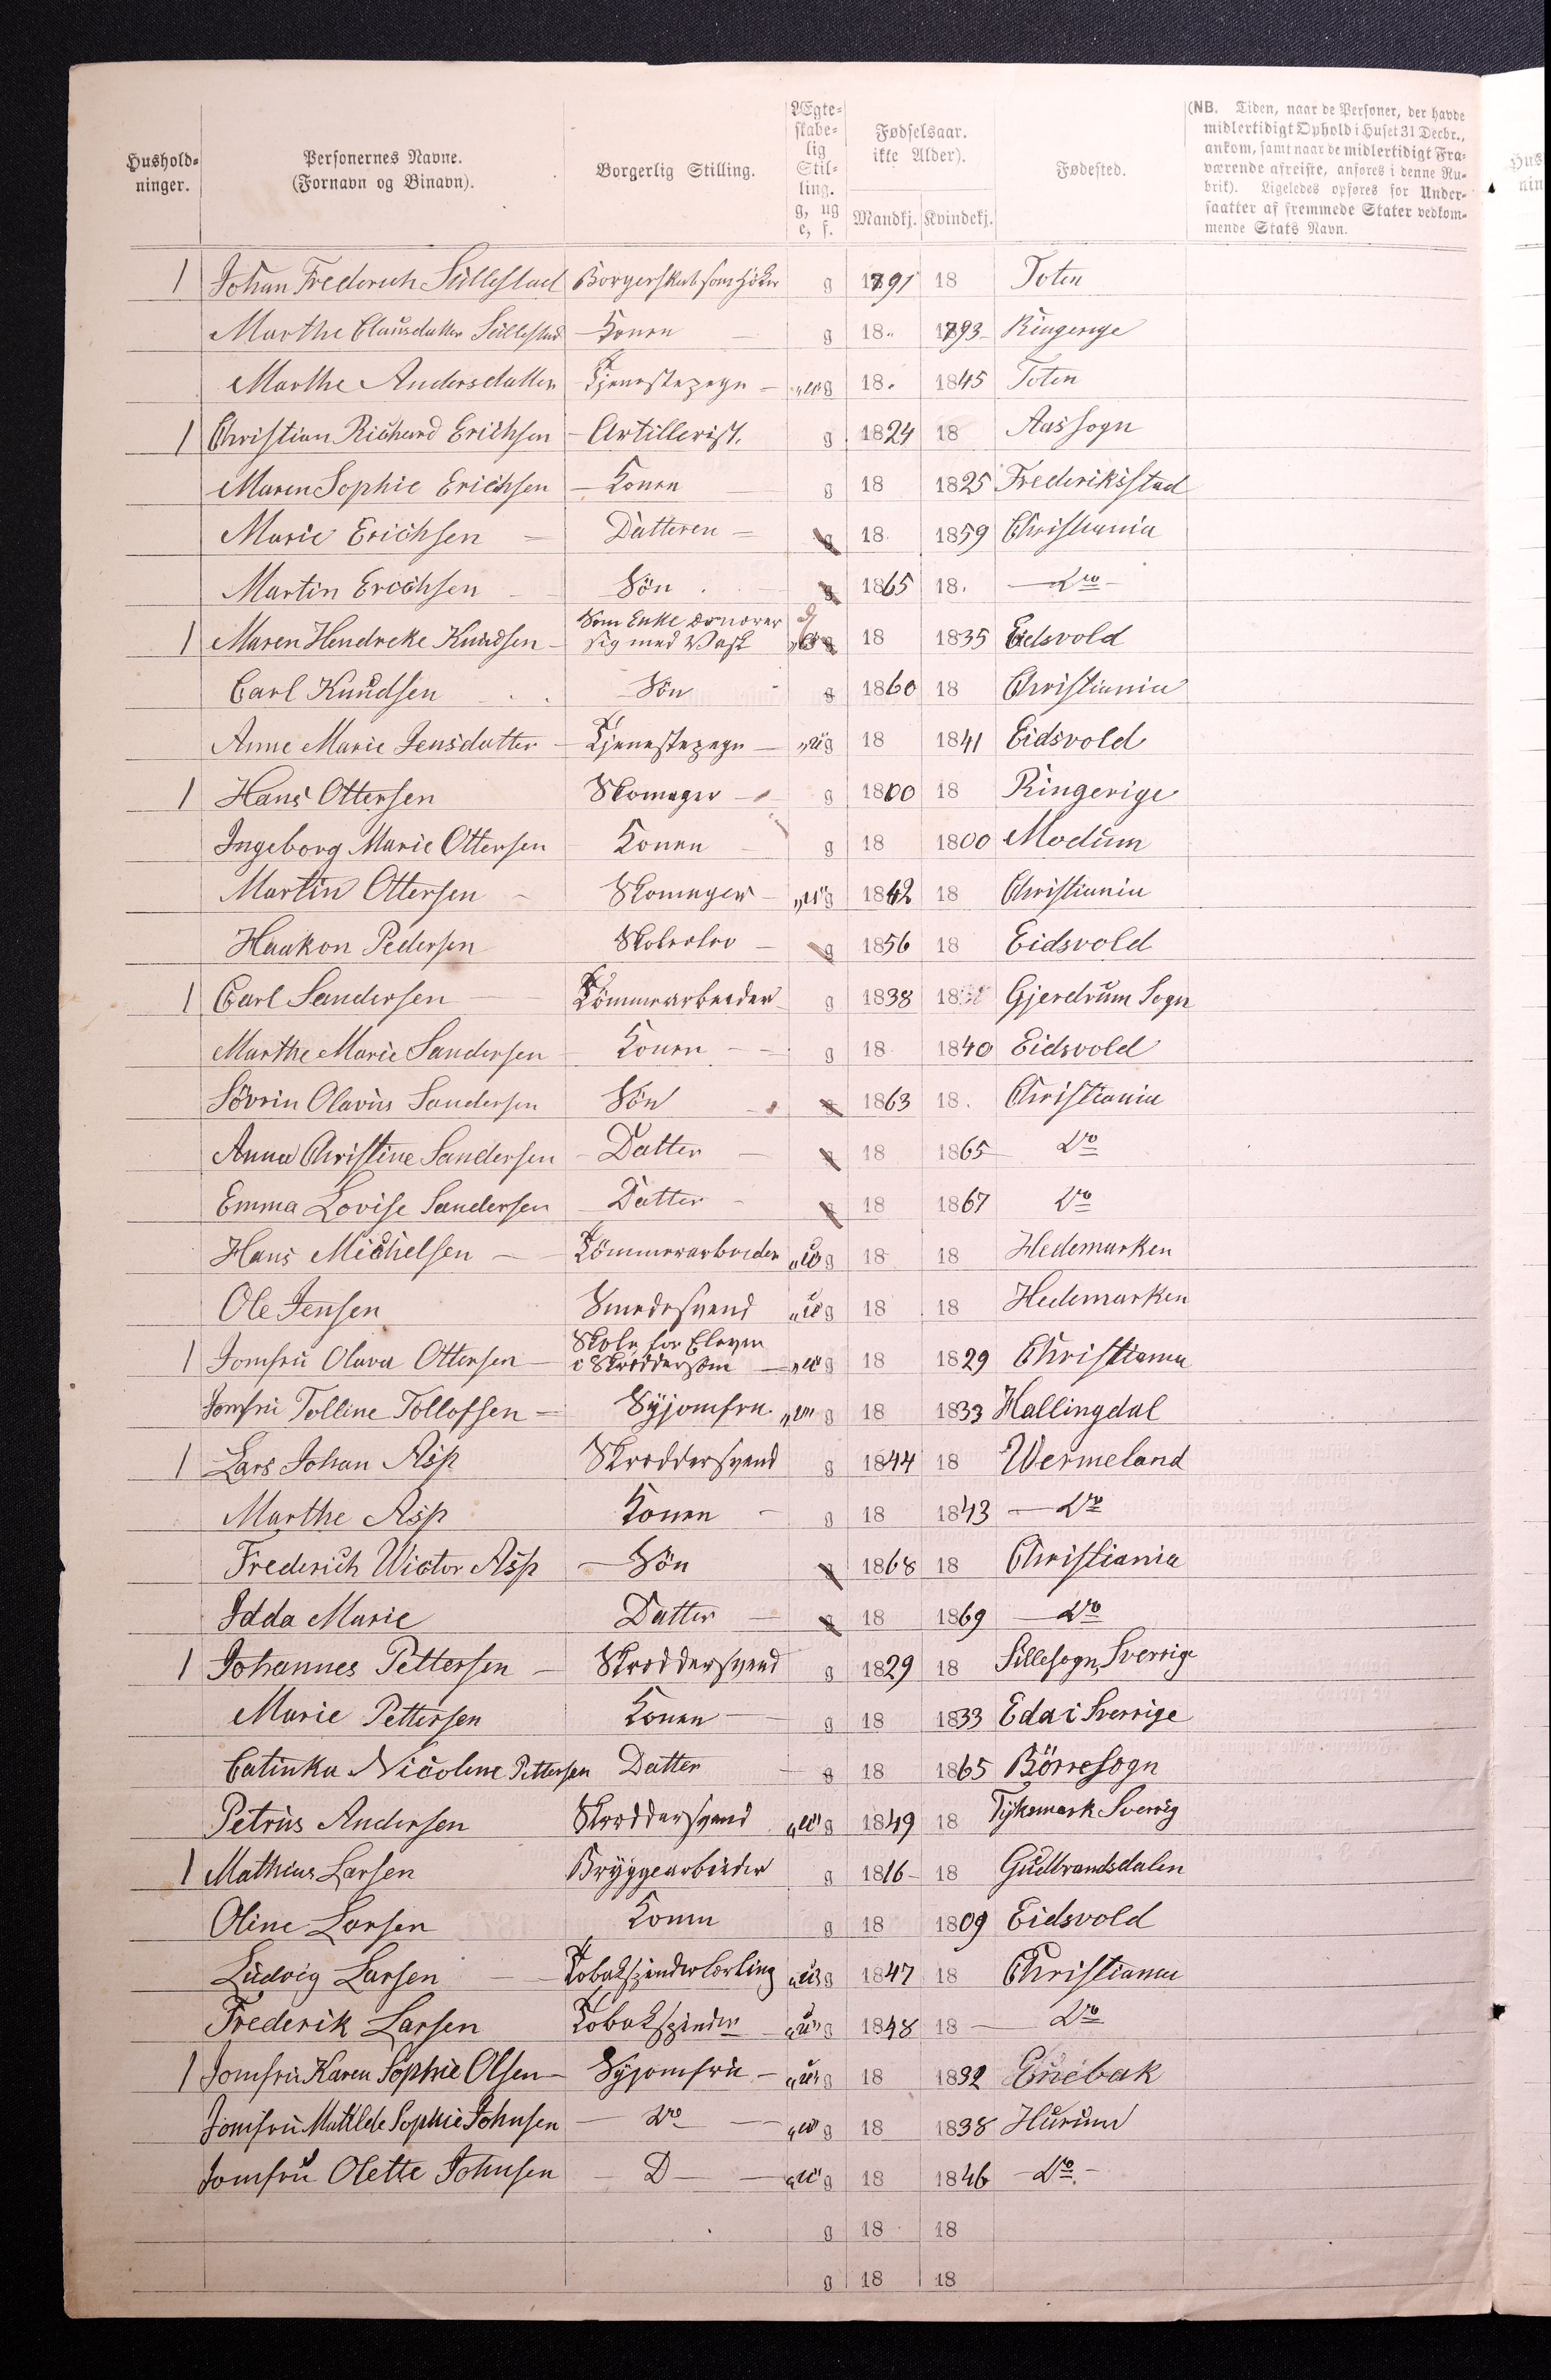 Hushold-
ninger.
Personernes Navne.
(Fornavn og Binavn).
Borgerlig Stilling.
Ægte-
skabe-
lig
Stil-
ling.
g, ug
e, f.
Fødselsaar.
ikke Alder).
Mandkj. Kvindekj.
Fødested.
(NB. Tiden, naar de Personer, der havde
midlertidigt Ophold i Huset 31 Decbr.,
ankom, samt naar de midlertidigt Fra-
værende afreiste, anføres i denne Ru-
brik). Ligeledes opføres for Under-
saatter af fremmede Stater vedkom-
mende Stats Navn.
1 Johan Frederich Sillestad Borgerskab som Höker g 1791 18 Toten
Marthe Clausdatter Sillestad Konen g 18 1793 Ringerige
Marthe Andersdatter Tjenestepige ug 18 1845 Toten
1 Christian Richard Erichsen Artillerist. g 1824 18 Aas Sogn
Maren Sophie Erichsen Konen g 18 1825 Frederiksstad
Marie Erichsen Datteren g 18 1859 Christiania
Martin Erichsen Sön g 1865 18 Do
1 Maren Hendreke Knudsen Som Enke ernærer
sig med Vask g 18 1835 Eidsvold
Carl Knudsen Sön g 1860 18 Christiania
Anne Marie Jensdatter Tjenestepige ug 18 1841 Eidsvold
1 Hans Ottersen Skomager g 1800 18 Ringerige
Ingeborg Marie Ottersen Konen g 18 1800 Modum
Martin Ottersen Skomager ug 1842 18 Christiania
Haakon Pedersen Skoleelev g 1856 18 Eidsvold
1 Carl Sandersen Tömmerarbeider g 1838 18 Gjerdrum Sogn
Marthe Marie Sandersen Konen g 18 1840 Eidsvold
Sövrin Olavus Sandersen Sön g 1863 18 Christiania
Anna Christine Sandersen Datter g 18 1865 Do
Emma Lovise Sandersen Datter g 18 1867 Do
Hans Michelsen Tömmerarbeider ug 18 18 Hedemarken
Ole Jensen Smedesvend ug 18 18 Hedemarken
1 Jomfru Olava Ottersen Skole for Elever
i Skræddersöm ug 18 1829 Christiania
Jomfru Tolline Tollofsen Syjomfru ug 18 1833 Hallingdal
1 Lars Johan Asp Skræddersvend g 1844 18 Wermeland
Marthe Asp Konen g 18 1843 Do
Frederich Wictor Asp Sön g 1868 18 Christiania
Idda Marie Datter g 18 1869 Do
1 Johannes Pettersen Skræddersvend g 1829 18 Sillesogn, Sverrige
Marie Pettersen Konen g 18 1833 Eda i Sverrige
Catinka Nicoline Pettersen Datter g 18 1865 Börre Sogn
Petrus Andersen Skræddersvend ug 1849 18 Sverrig
1 Mathias Larsen Bryggearbeider g 1816 18 Gudbrandsdalen
Oline Larsen Konen g 18 1809 Eidsvold
Ludvig Larsen Tobakspinderlærling ug 1847 18 Christiania
Frederik Larsen Tobakspinder ug 1848 18 Do
1 Jomfru Karen Sophie Olsen Syjomfru ug 18 1832 Enebak
Jomfru Mathilde Sophie Johnsen Do ug 18 1838 Hurum
Jomfru Olette Johnsen D ug 18 1846 Do
g 18 18
g 18 18